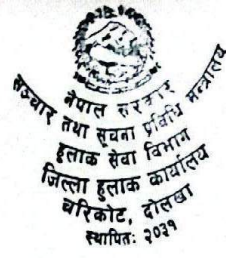 नेपाल सरकार
सञ्चार तथा सूचना प्रविधि मन्त्रालय
हुलाक सेवा विभाग
जिल्ला हुलाक कार्यालय
चरिकोट, दोलखा
स्थापितः २०३१